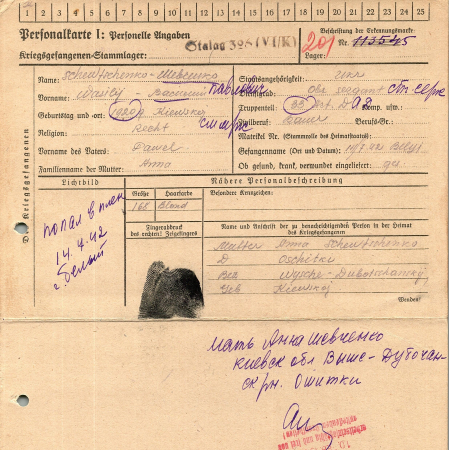 1 2 3 4 5 6 7 8 9 10 11 12 13 14 15 16 17 18 19 20 21 22 23 24 25
Personalkarte I: Personelle Angaben
Kriegsgefangenen-Stammlager: Stalag 326 (VI/K)
Beschriftung der Erkennungsmarke
201 Nr. 113545
Lager:
Des Kriegsgefangenen
Name: Schewtschenko - Шевченко
Vorname: Wasilij - Василий Павлович
Geburtstag und -ort: 1920 Kiewskoj
Religion:
Vorname des Vaters: Pawel
Familienname der Mutter: Anna
Staatsangehörigkeit: Ukr
Dienstgrad: ст серж
Truppenteil: 33 Komp. usw.:
Zivilberuf: Bauer Berufs-Gr.:
Matrikel Nr. (Stammrolle des Heimatstaates):
Gefangennahme (Ort und Datum): Belyi
Ob gesund, krank, verwundet eingeliefert:
Lichtbild
Nähere Personalbeschreibung
Größe Haarfarbe Besondere Kennzeichen:
Bland
Fingerabdruck
des rechten! Zeigefingers
Name und Anschrift der zu benachrichtigenden Person in der Heimat
des Kriegsgefangenen
Mutter Anna Schewtschenko
D Oschitki
Bez Wysche-Dubotschanskij
Geb Kiewskoj
Wenden!
попал в плен
14.4.42
г. Белый
мать Анна Шевченко
киевск обл Выше-Дуточан-
ск рн. Ошитки